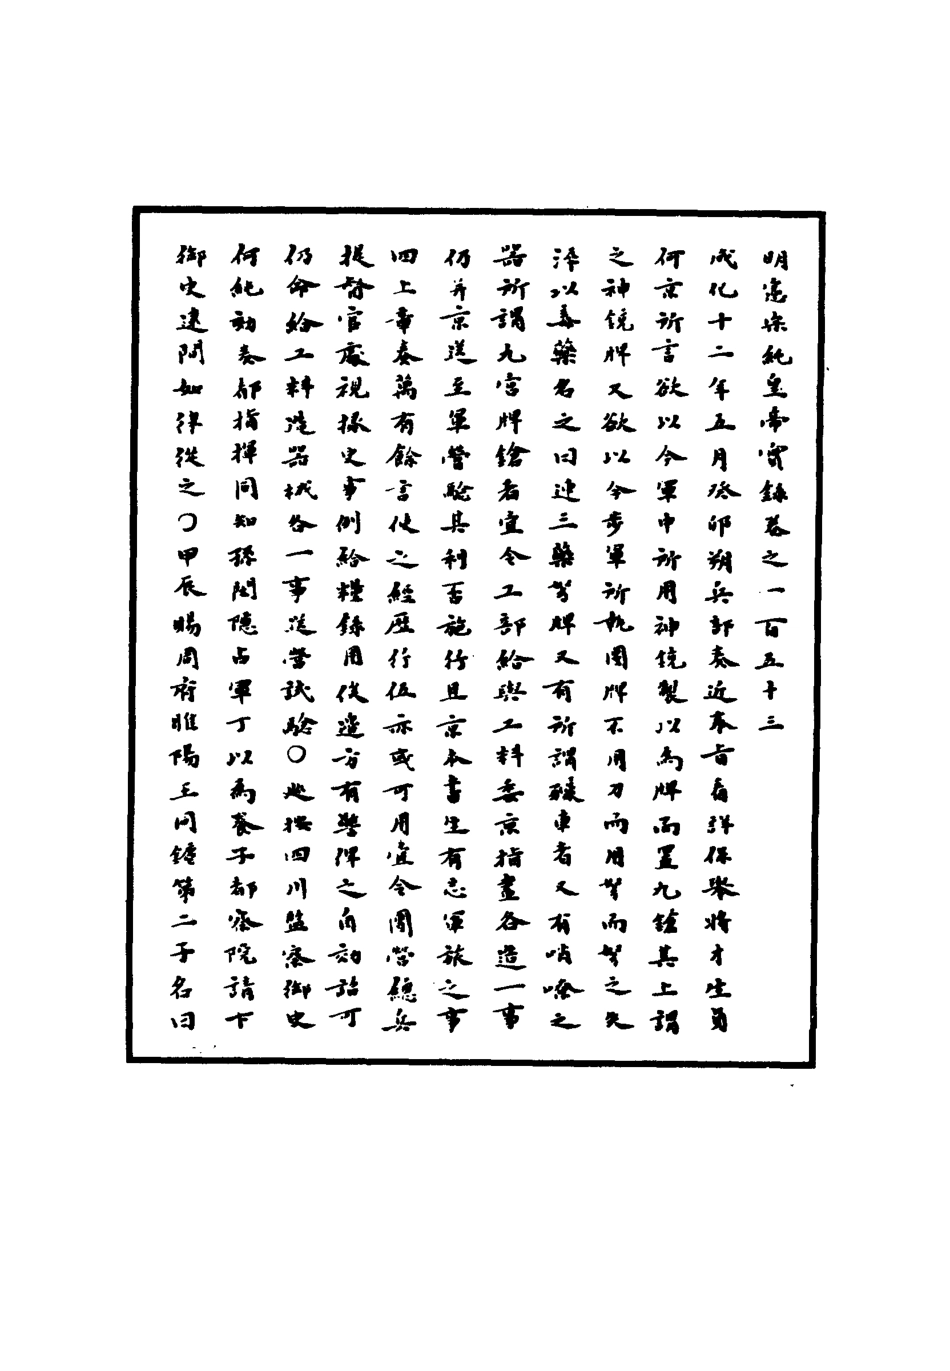 明憲宗純皇帝實錄卷之一百五十三
成化十二年五月癸卯朔兵部奏近奉旨看詳保舉將才生員
何京所言欲以今軍中所用神鎗製以為牌而置九鎗其上謂
之神鎗牌又欲以今步軍所執圓牌不用刀而用弩而弩之矢
淬以毒藥名之曰連三藥弩牌又有所謂 車者又有哨嘹之
器所謂九宮牌鎗者宜令工部給與工料委京指畫各造一事
仍并京送至軍營驗其利否施行且京本書生有志軍旅之事
四上章奏萬有餘言使之經歷行伍亦或可用宜令團營總兵
提督官處視掾史事例給糧錄用俟造方有擊得之自劾詔可
仍命給工料造器械各一事送營試驗○巡按四川監察御史
何純劾奏都指揮同知孫閏隱占軍丁以為養子都察院請下
御史逮問如律從之○甲辰賜周府睢陽王同鏕第二子名曰